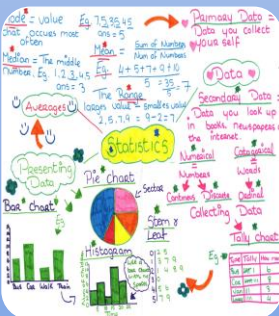 Mode = value
that occurs most
often
Eg. 7,5,35,45
ans = 5
Median = The middle
Number. Eg. 1,2,3,4,5
ans = 3
Mean = Sum of Numbers
Num of Numbers
Eg. 4+5+7+9+10
= 35/5 = 7
The Range
larges value - smalles value
2,5,7,9 = 9-2=7
Averages
Primary Data =
Data you collect
yourself
Data
Secondary Data =
Data you look up
in books, newspapers,
the internet.
Statistics
Numerical
Numbers
Categorical
Words
Discrete
Ordinal
Collecting Data
Tally chart
Presenting
Data
Bar chart
Eg
Bus Car Walk Train
Pie chart
Sector
Stem &
Leaf
Histogram
Time
Eg
Tally
Bus
Car